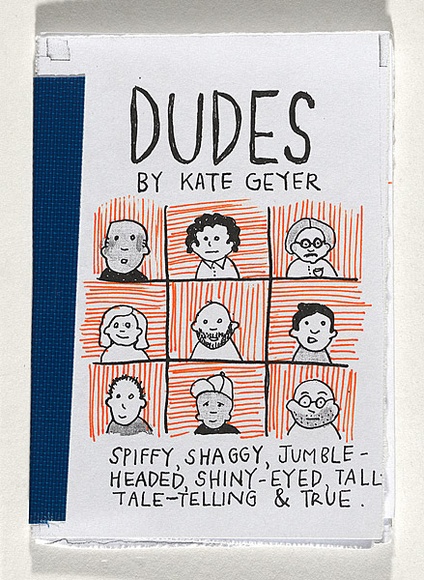 DUDES
BY KATE GEYER
SPIFFY, SHAGGY, JUMBLE-
HEADED, SHINY-EYED, TALL-
TALE-TELLING & TRUE.